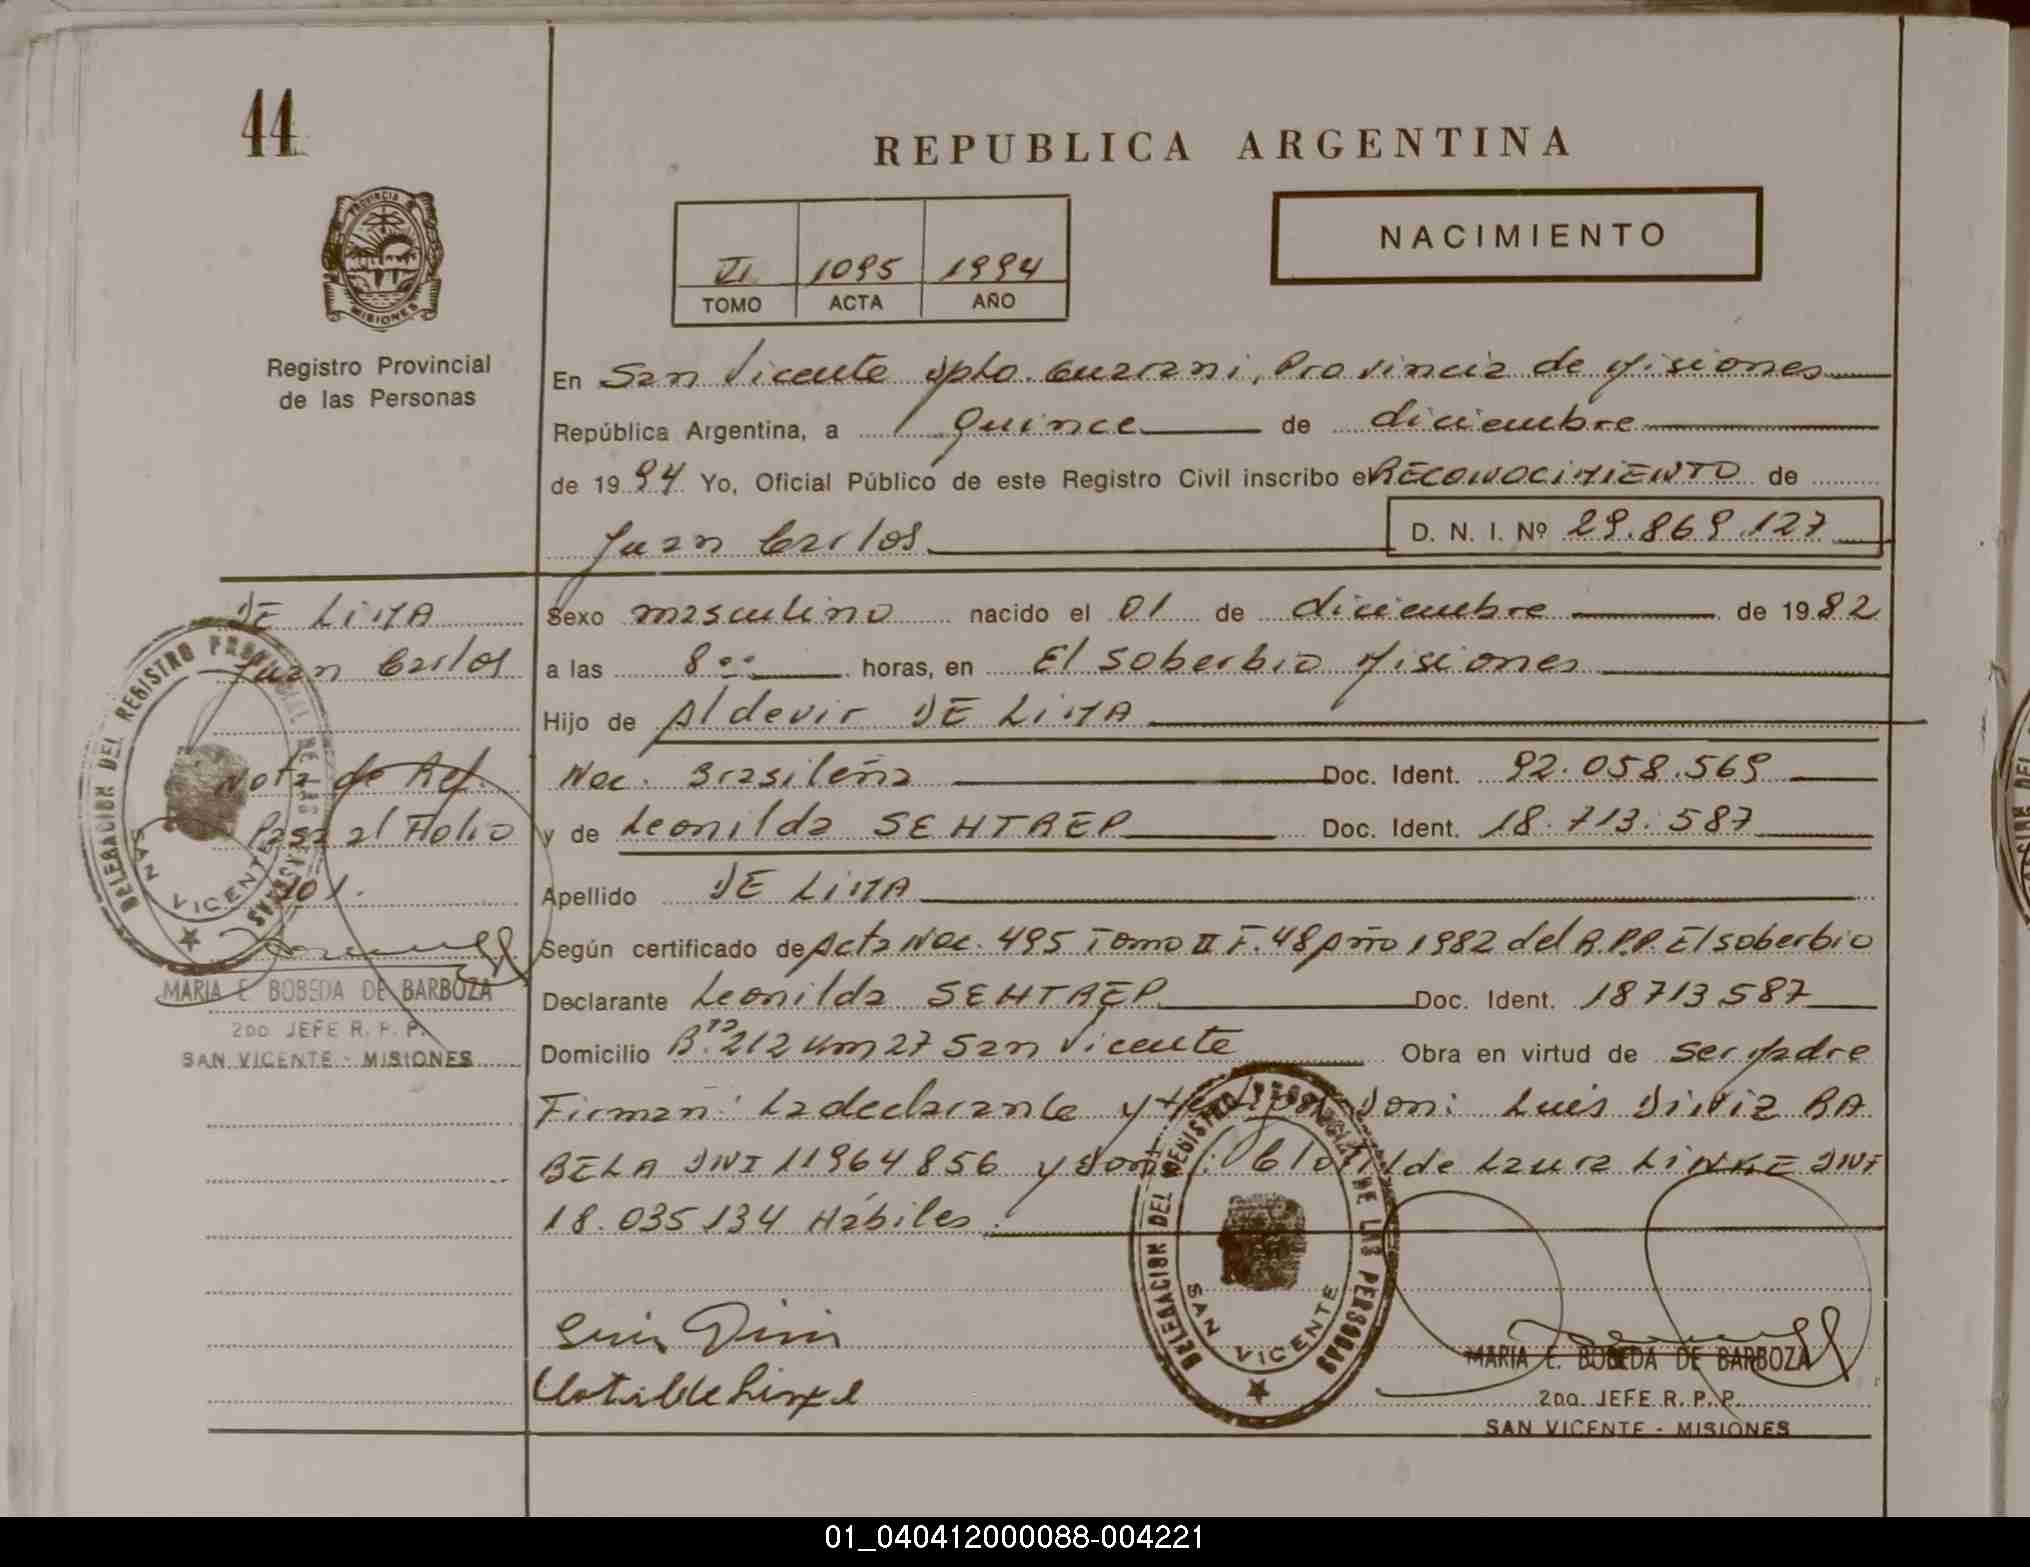 44
REPUBLICA ARGENTINA
PROVINCIA DE MISIONES
NACIMIENTO
VI 1095 1994
TOMO ACTA AÑO
Registro Provincial
de las Personas
En San Vicente Dpto. Guarani, Provincia de Misiones
República Argentina, a Quince de diciembre
de 1994 Yo, Oficial Público de este Registro Civil inscribo el RECONOCIMIENTO de
Juan Carlos D. N. I. Nº 29.869.127
DE LIMA
Juan Carlos
Nota de Ref.
Pasa al Folio
101.
MARIA E. BOBEDA DE BARBOZA
2DO JEFE R. P. P.
SAN VICENTE - MISIONES
DELEGACION DEL REGISTRO PROVINCIAL DE LAS PERSONAS
SAN VICENTE
Sexo masculino nacido el 01 de diciembre de 1982
a las 8 00 horas, en El Soberbio Misiones
Hijo de Aldevir DE LIMA
Nac. Brasileña Doc. Ident. 92.058.569
y de Leonilda SEHTREP Doc. Ident. 18.713.587
Apellido DE LIMA
Según certificado de Acta Nac. 495 Tomo II F. 48 Año 1982 del R.P.P. El Soberbio
Declarante Leonilda SEHTREP Doc. Ident. 18713587
Domicilio Bº 212 Km 27 San Vicente Obra en virtud de ser Madre
Firman: La declarante y Don: Luis DINIZ RA
BELA DNI 11964856 y Doña: Clotilde Laura LINKE DNI
18.035134 Hábiles.
DELEGACION DEL REGISTRO PROVINCIAL DE LAS PERSONAS
SAN VICENTE
Luis Diniz
Clotilde Linke
MARIA E. BOBEDA DE BARBOZA
2DO. JEFE R. P. P.
SAN VICENTE - MISIONES
01_040412000088-004221